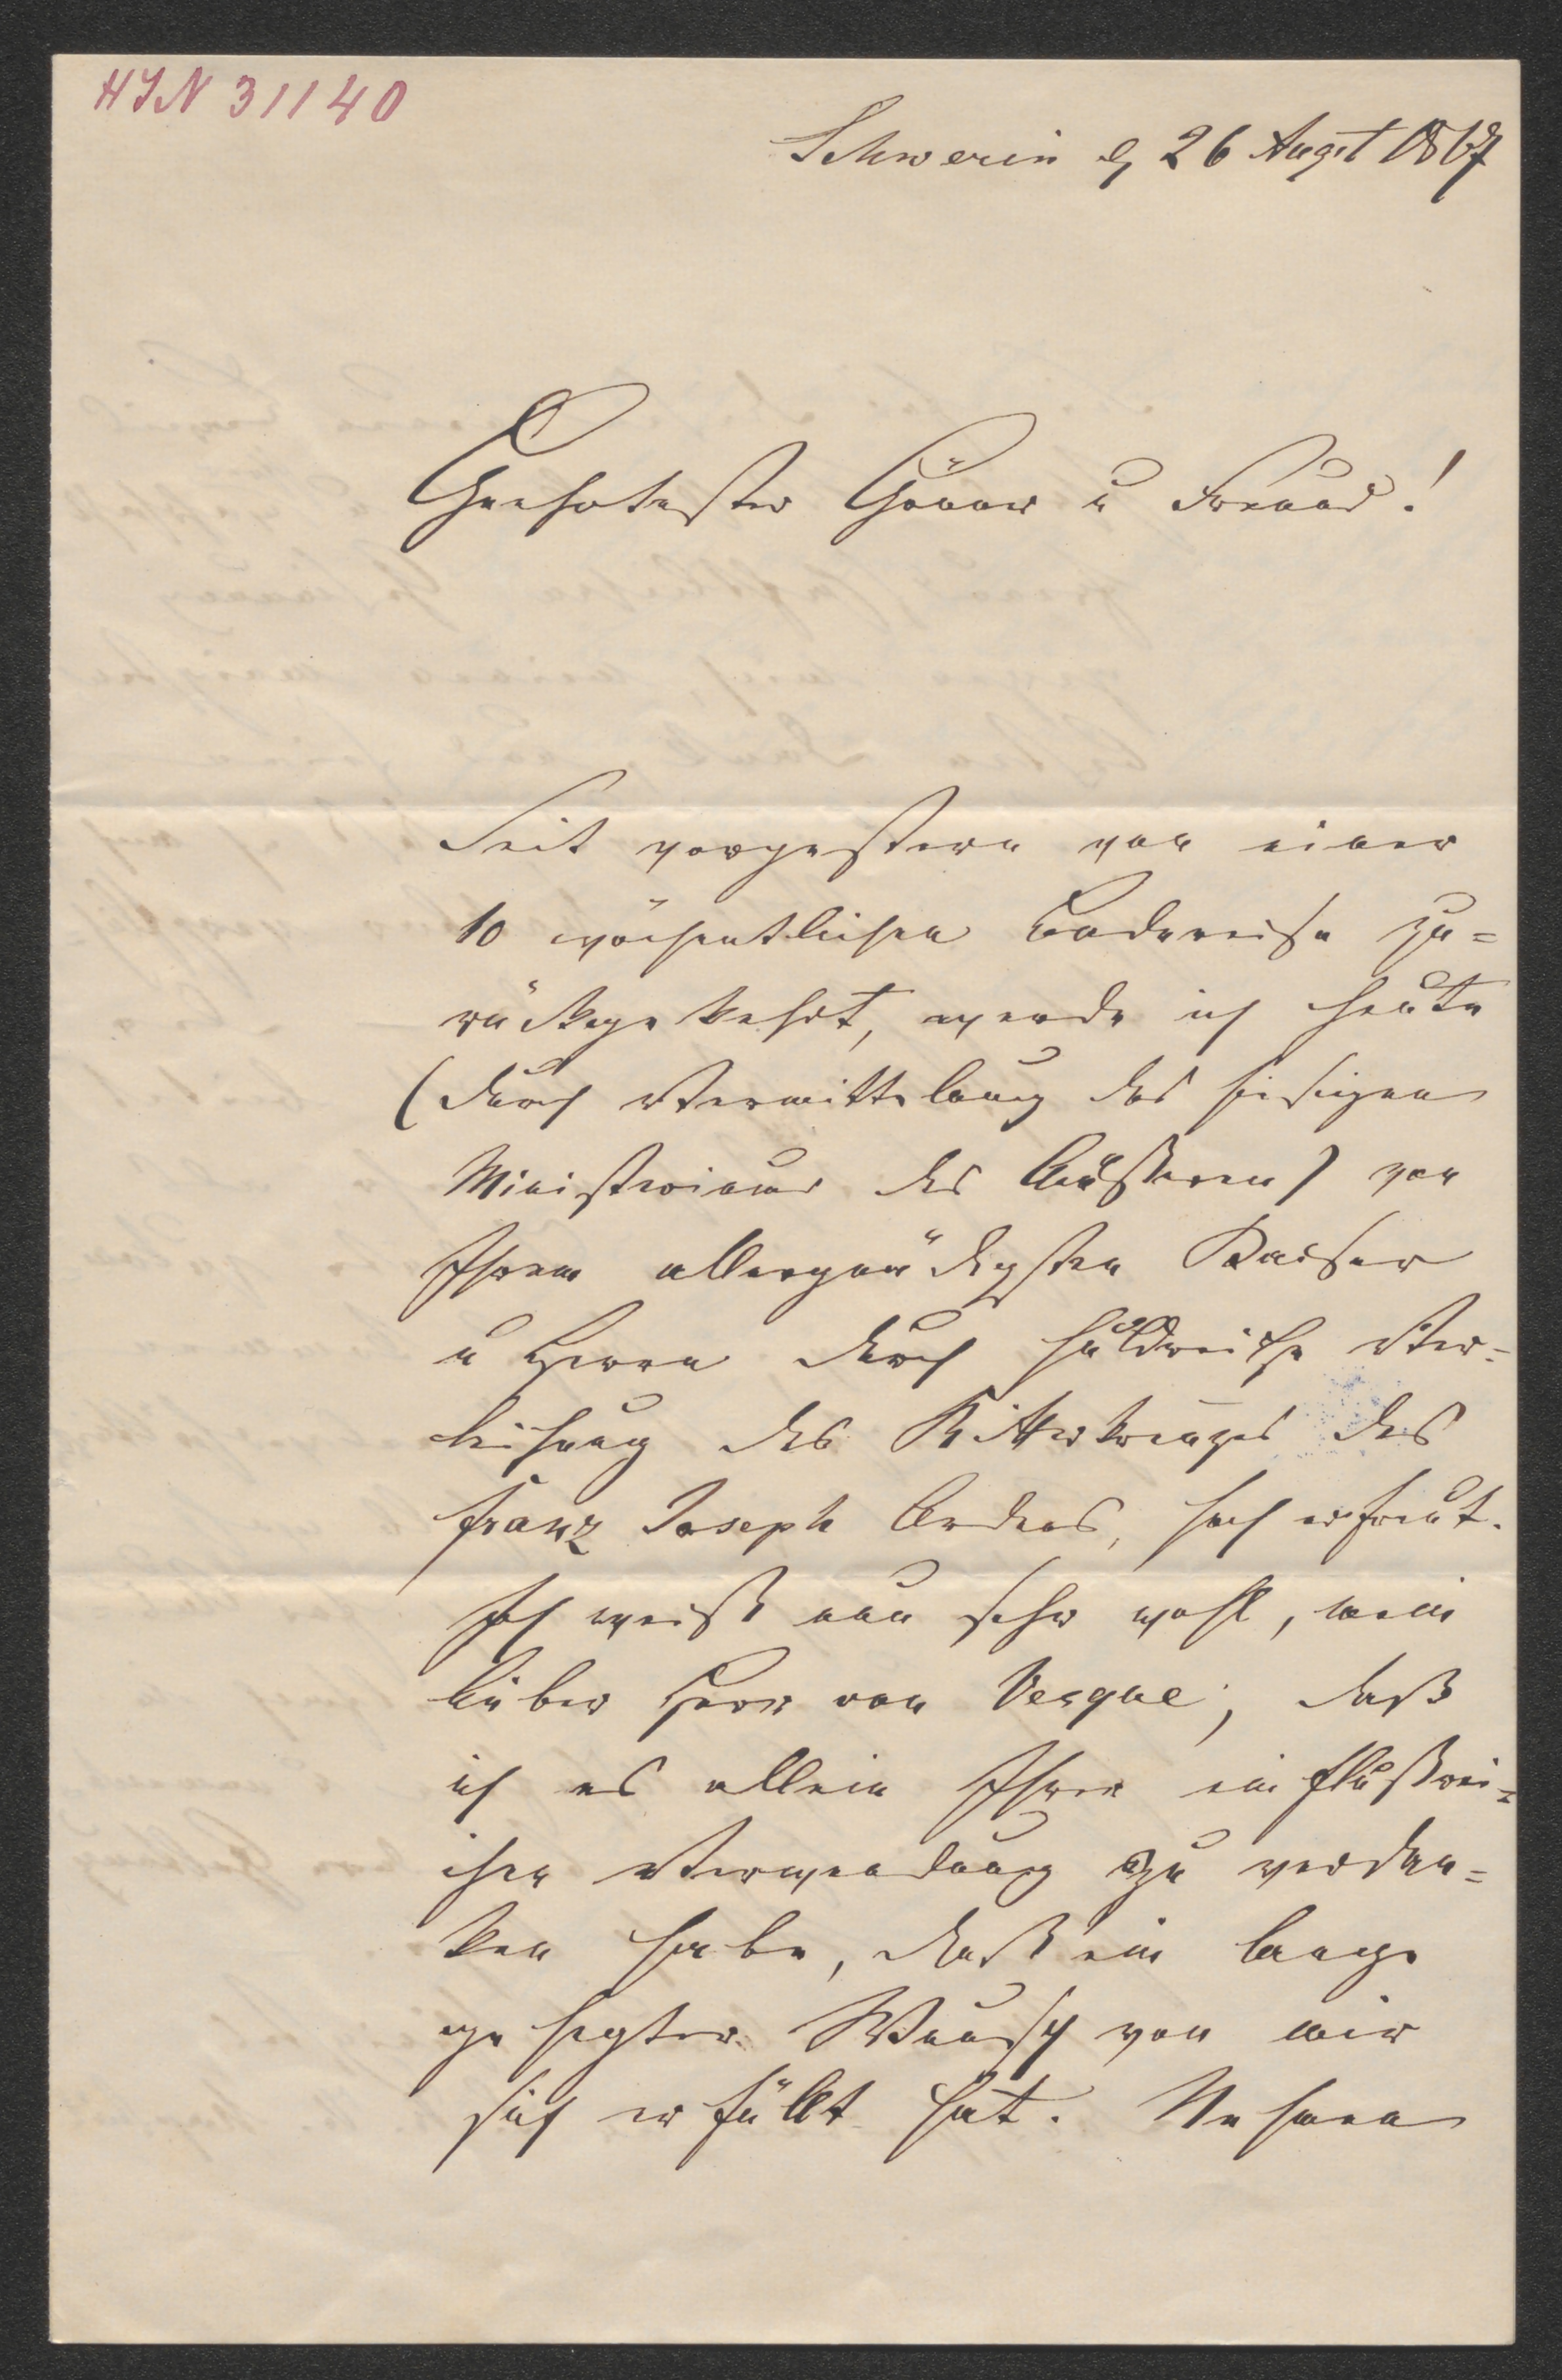 HIN 31140
Schwerin d, 26 Augst 1867
Geehrtester Gönner u Freund!
Seit vorgestern von einer
10 wöchentlichen Badereise zu=
rückgekehrt, werde ich heute
(durch Vermittelung des hiesigen
Ministeriums des Äußeren) von
Ihrem allergnädigsten Kaiser
u Herrn durch huldreiche Ver=
leihung des Ritterkreuzes des
Franz Joseph Ordens, hoch erfreut.
Ich weiß nun sehr wohl, mein
lieber Herr von Vesque, daß
ich es allein Ihrer einflußrei=
chen Verwendung zu verdan=
ken habe, daß ein lange
gehegter Wunsch von mir
sich erfüllt hat. Nehmen